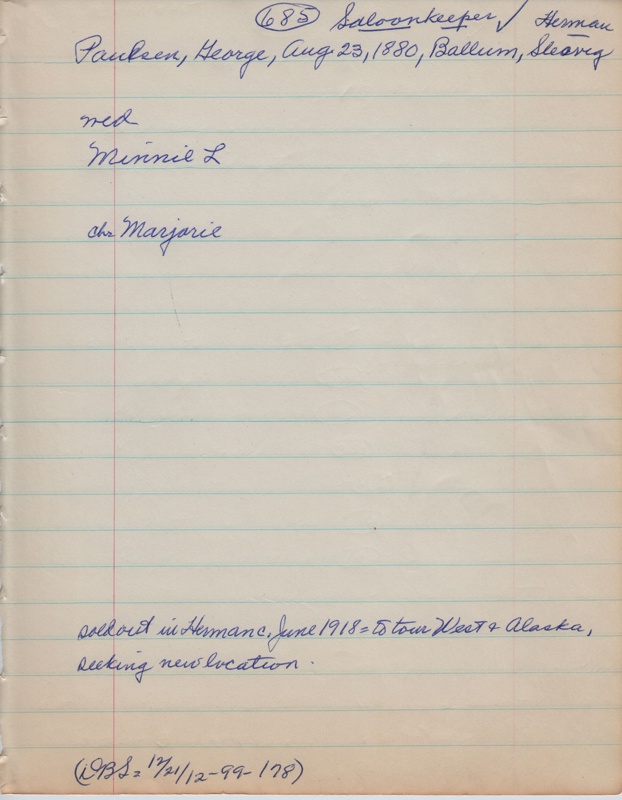 685 Saloonkeeper ✓ Herman
Paulsen, George, Aug 23, 1880, Ballum, Slesvig
wed
Minnie L
chr Marjorie
sold out in Herman c, June 1918 = to tour West & Alaska,
seeking new location.
(DBS = 12/21/12-99-178)